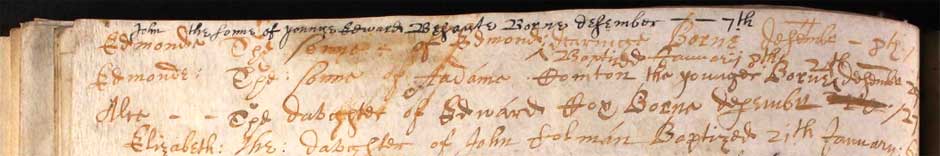 John the sonne of younge Edward Borne desember - - 7th
Edmonde The sonne : of Edmond Borne desembe - 8th
Baptized January 8th
Edmonde : The sonne of Adame the younger Borne desember
Alce - - The daughter of Edward Cox Borne desember 27
Elizabeth : the : daughter of John Colman Baptized 21th January : 6